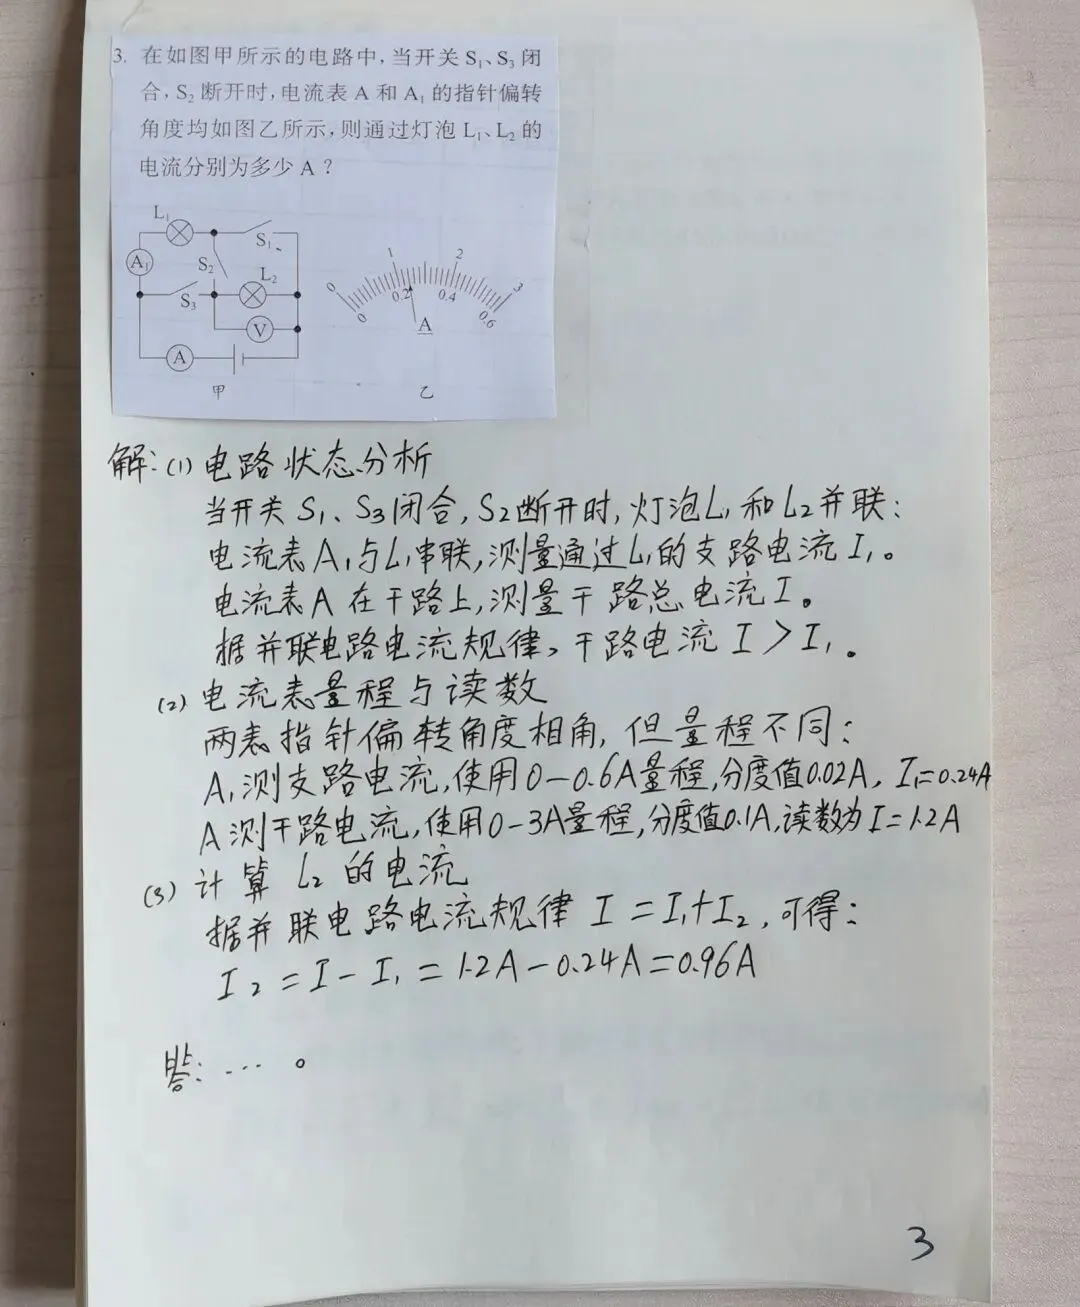 3. 在如图甲所示的电路中,当开关 S₁、S₃ 闭
合,S₂ 断开时,电流表 A 和 A₁ 的指针偏转
角度均如图乙所示,则通过灯泡 L₁、L₂ 的
电流分别为多少 A？
L₁
S₁
A₁
S₂
L₂
S₃
V
A
甲
0 1 2 3
0 0.2 0.4 0.6
A
乙
解:(1)电路状态分析
当开关S₁、S₃闭合,S₂断开时,灯泡L₁和L₂并联:
电流表A₁与L₁串联,测量通过L₁的支路电流I₁。
电流表A在干路上,测量干路总电流I。
据并联电路电流规律,干路电流I>I₁。
(2)电流表量程与读数
两表指针偏转角度相角,但量程不同:
A₁测支路电流,使用0-0.6A量程,分度值0.02A,I₁=0.24A
A测干路电流,使用0-3A量程,分度值0.1A,读数为I=1.2A
(3)计算L₂的电流
据并联电路电流规律I=I₁+I₂,可得:
I₂=I-I₁=1.2A-0.24A=0.96A
答:…。
3